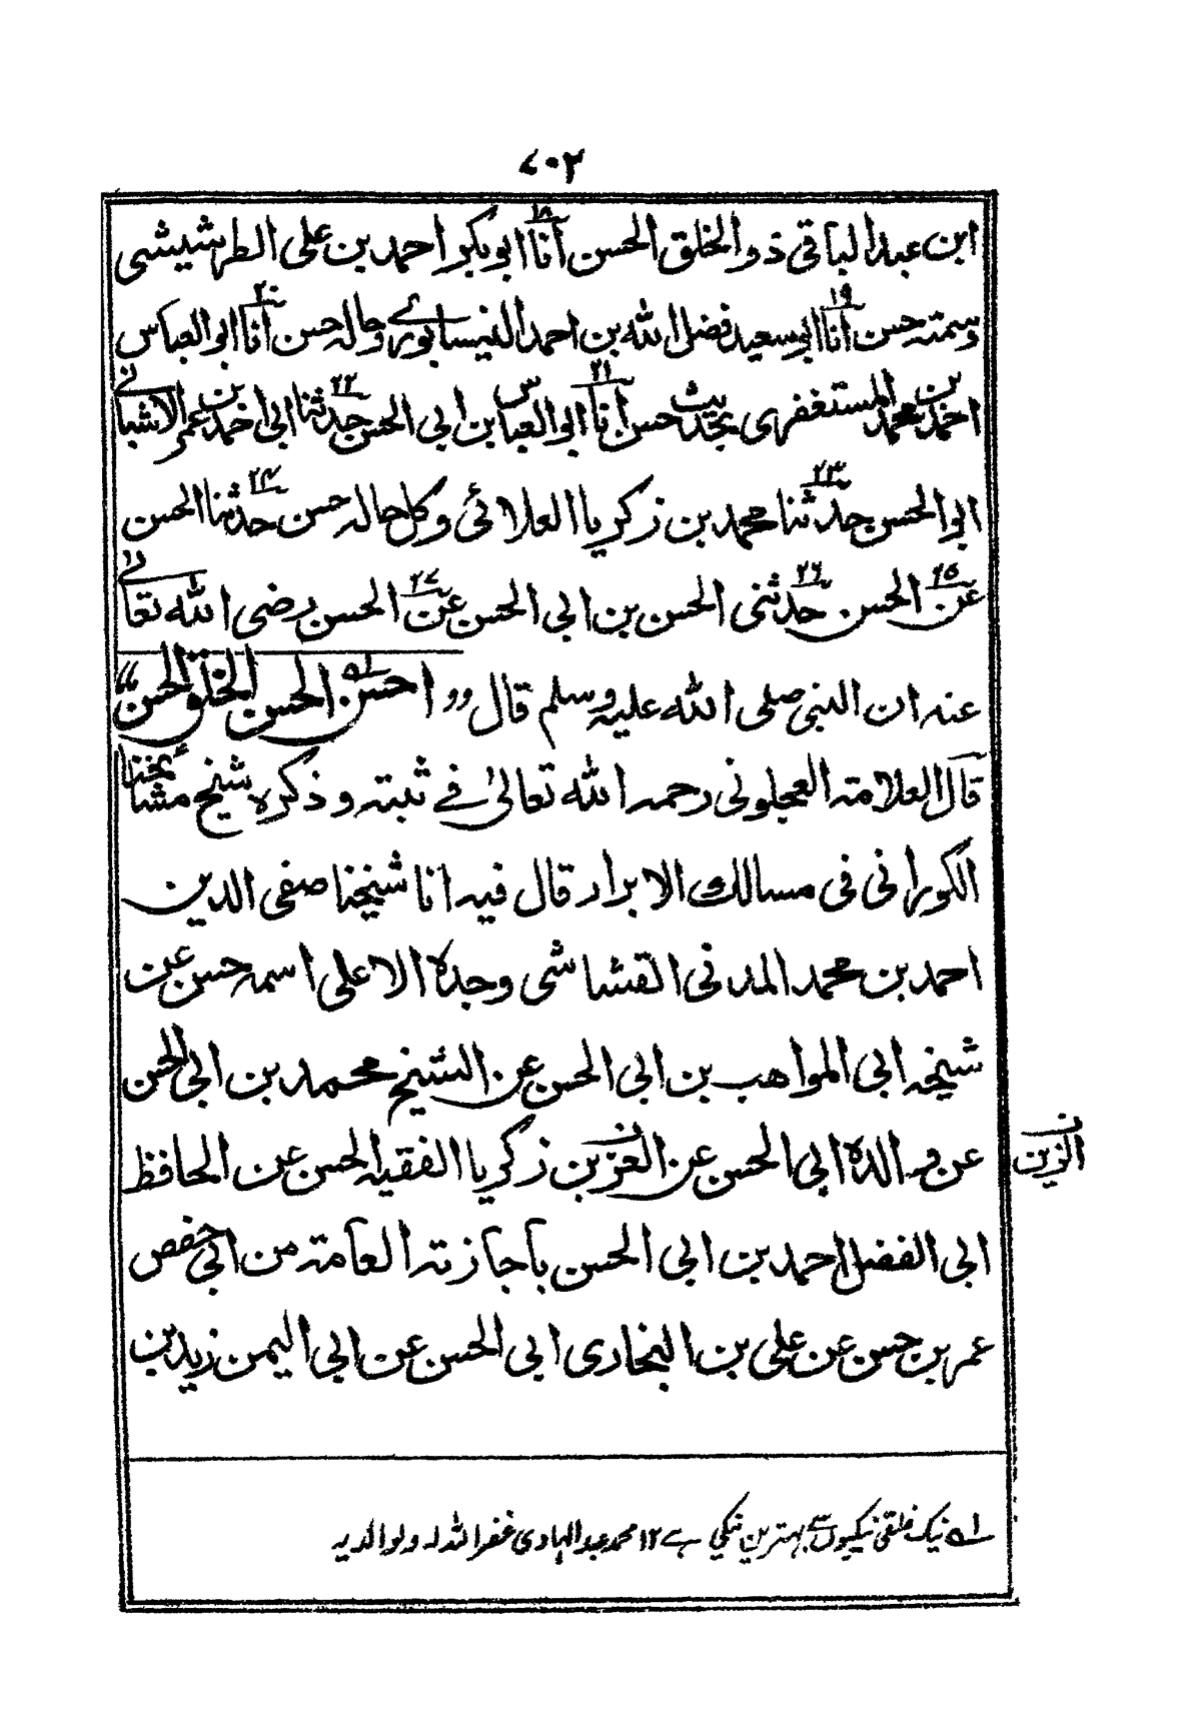 ٤٠٢
ابن عبد الباقي ذو الخلق الحسن انا١٨ ابو بكر احمد بن علي الطرشيشى
وسمته حسن انا١٩ ابو سعيد فضل الله بن احمد النيسابورے وحاله حسن انا٢٠ ابو العباس
احمد بن محمد المستغفرى بحديث حسن انا٢١ ابو العباس بن ابي الحسن حدثنا٢٢ ابي احمد بن عمر الاشبانے
ابو الحسن حدثنا٢٣ محمد بن زكريا العلائى وكل حاله حسن حدثنا٢٤ الحسن
عن٢٥ الحسن حدثنى٢٦ الحسن بن ابي الحسن عن٢٧ الحسن رضى الله تعالے
عنه ان النبي صلى الله عليه وسلم قال ”احسن الحسن الخلق الحسن“
قال العلامة العجلونى رحمه الله تعالى فے ثبته وذكره شيخ مشائخنا
الكورانى فى مسالك الابرار قال فيه انا شيخنا صفى الدين
احمد بن محمد المدنى القشاشى وجده الاعلى اسمه حسن عن
شيخه ابي المواهب بن ابي الحسن عن الشيخ محمد بن ابي الحسن
عن والده ابي الحسن عن العز بن زكريا الفقيه الحسن عن الحافظ
الزين ن
ابي الفضل احمد بن ابي الحسن باجازته العامة من ابي حفص
عمر بن حسن عن علي بن البخارى ابي الحسن عن ابي اليمن زيد بن
١ه نیک خلقی نیکیوں سے بہترین نیکی ہے ١٢ محمد عبد الہادی غفر اللہ لہ ولوالدیہ